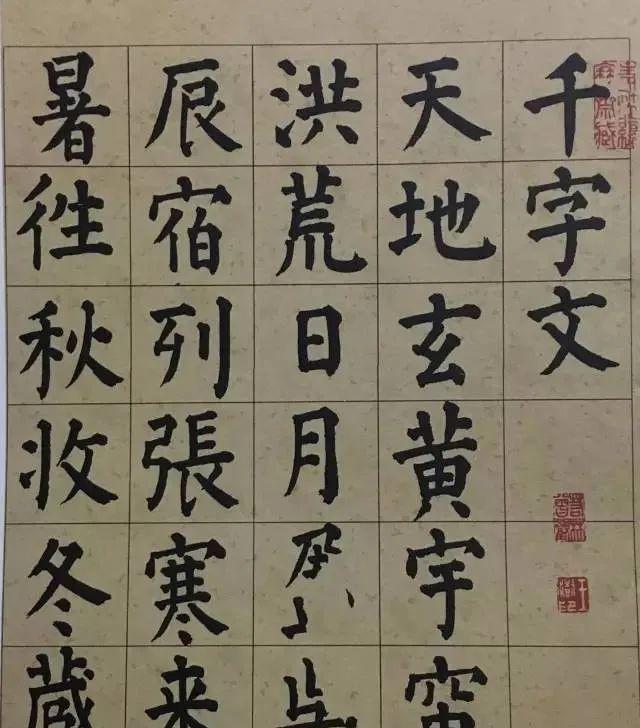 千字文
天地玄黄宇宙
洪荒日月
辰宿列張寒来
暑徃秋收冬藏